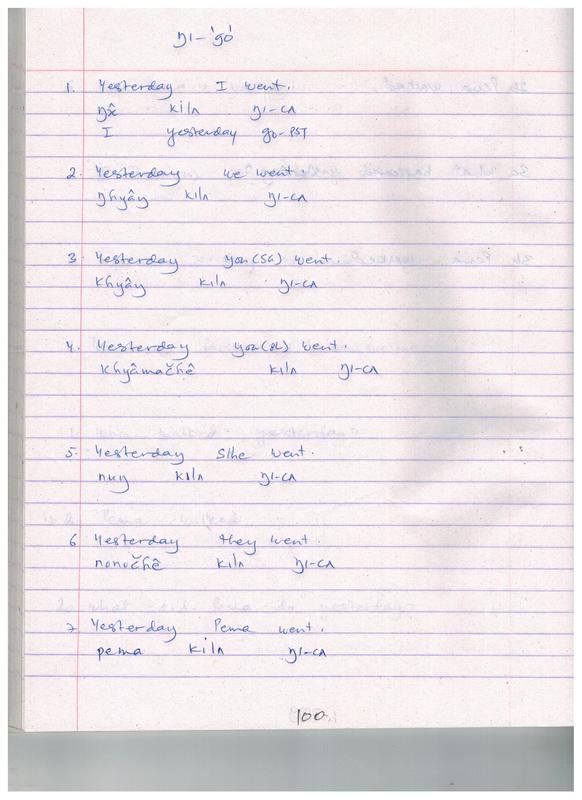 ŋı-'go'
1. Yesterday I went.
ŋx̂ kılʌ ŋı-cʌ
I yesterday go-PST
2. Yesterday we went.
ŋhyâŋ kılʌ ŋı-cʌ
3 Yesterday you(SG) went.
khyâŋ kılʌ ŋı-cʌ
4. Yesterday you(PL) went.
khyâmačhê kılʌ ŋı-cʌ
5. Yesterday S/he went.
nuŋ kılʌ ŋı-cʌ
6 Yesterday they went.
nonučhê kılʌ ŋı-cʌ
7 Yesterday Pema went.
pema kilʌ ŋı-cʌ
100